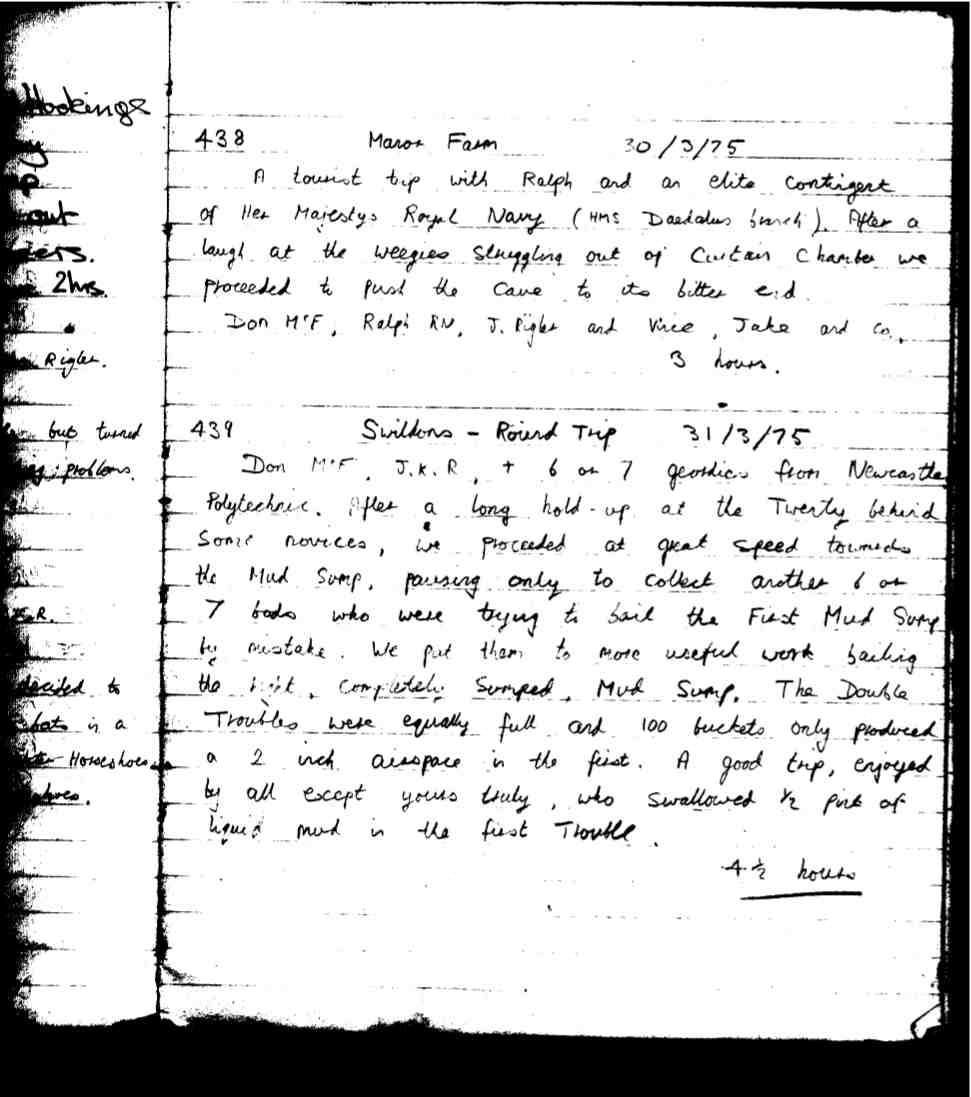 Hookings
y
p
out
ters.
2hrs.
Rigler.
but turned
problems.
R.
decided to
bats in a
Horseshoes
438 Manor Farm 30/3/75
A tourist trip with Ralph and an elite contingent
of Her Majestys Royal Navy (HMS Daedalus branch). After a
laugh at the weegies struggling out of Curtain Chamber we
proceeded to push the cave to its bitter end.
Don McF, Ralph RN, J. Rigler and Vince, Jake and Co.
3 hours.
439 Swildons - Round Trip 31/3/75
Don McF, J.K.R, + 6 or 7 geordies from Newcastle
Polytechnic. After a long hold-up at the Twenty behind
some novices, we proceeded at great speed towards
the Mud Sump, pausing only to collect another 6 or
7 bods who were trying to bail the First Mud Sump
by mistake. We put them to more useful work bailing
the completely sumped, Mud Sump. The Double
Troubles were equally full and 100 buckets only produced
a 2 inch airspace in the first. A good trip, enjoyed
by all except yours truly, who swallowed ½ pint of
liquid mud in the first Trouble.
4½ hours